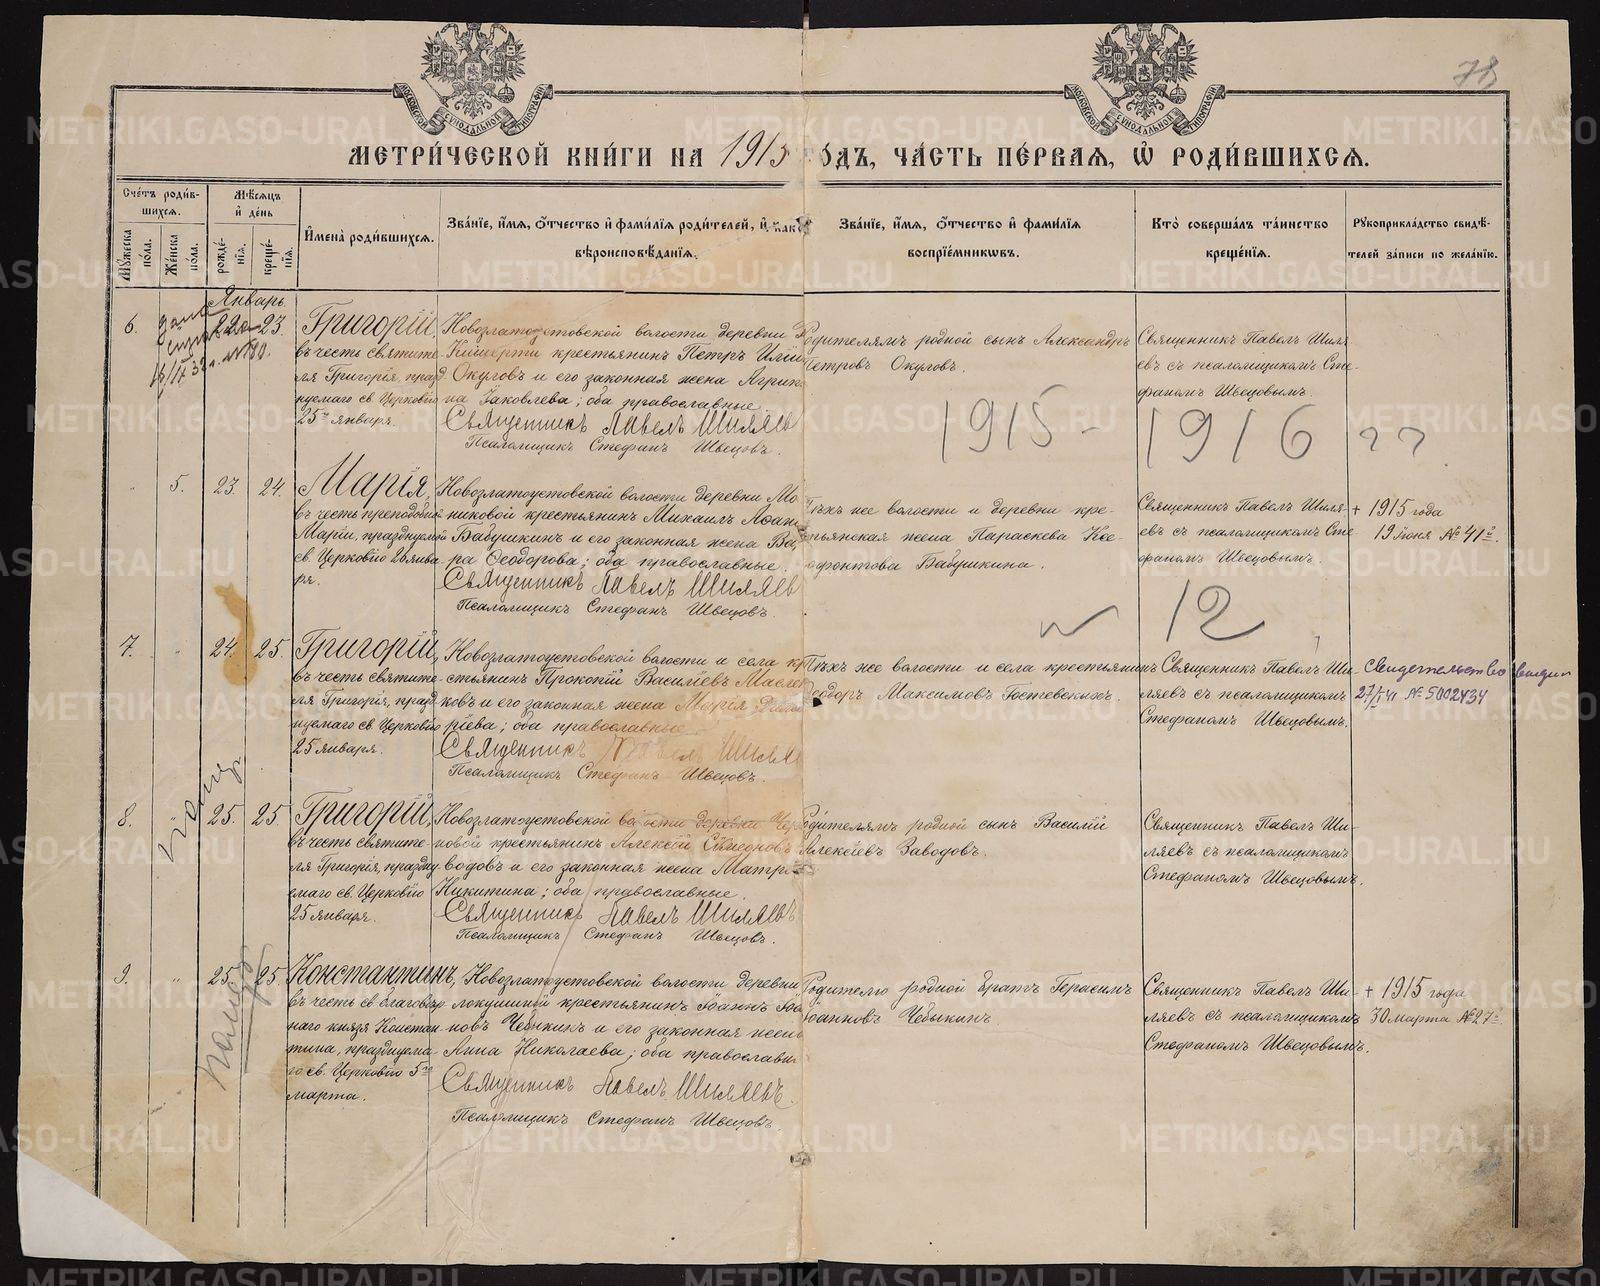 78
МЕТРИ́ЧЕСКОЙ КНИ́ГИ НА 1915 ГОДЪ, ЧА́СТЬ ПЕ́РВАЯ, Ѽ РОДИ́ВШИХСЯ.
Сче́тъ роди́в-
шихся.
Му́жеска по́ла.
Же́нска по́ла.
Мѣ́сяцъ
и҆ де́нь
рожде́-
нїя.
креще́-
нїя.
И҆мена̀ роди́вшихся.
Зва́нїе, и҆́мя, ѻ҆́тчество и҆ фами́лїя роди́телей, и҆ как
вѣроисповѣ́данїя.
Зва́нїе, и҆́мя, ѻ҆́тчество и҆ фами́лїя
воспрїе́мникѡвъ.
Кто̀ соверша́лъ та́инство
креще́нїя.
Рꙋкоприкла́дство свидѣ́-
телей за́писи по жела́нїю.
Январь
6. 22 23.
Григорій,
въ честь святите-
ля Григорія, празд
нуемаго св. Церковію
25го января.
Новозлатоустовской волости деревни
Кишерти крестьянинъ Петръ Иліи
Окуловъ и его законная жена Агрип
на Іаковлева; оба православные.
Священникъ Павелъ Шиляевъ
Псаломщикъ Стефанъ Швецовъ.
Родителямъ родной сынъ Александръ
Петровъ Окуловъ.
Священникъ Павелъ Шиля
евъ съ псаломщикомъ Сте-
фаномъ Швецовымъ.
1915 - 1916 ??
" 5. 23. 24.
Марія,
въ честь преподобныя
Маріи, празднуемой
св. Церковію 26 янва-
ря.
Новозлатоустовской волости деревни Мо
никовой крестьянинъ Михаилъ Аѳан
Бабушкинъ и его законная жена Вар
ра Ѳеодорова; оба православные.
Священникъ Павелъ Шиляевъ
Псаломщикъ Стефанъ Швецовъ.
Тѣхъ же волости и деревни кре-
стьянская жена Параскева Ксе-
нофонтова Бабушкина.
Священникъ Павелъ Шиля-
евъ съ псаломщикомъ Сте
фаномъ Швецовымъ.
+ 1915 года
19 іюня № 41й.
12
7. " 24. 25.
Григорій,
въ честь святите-
ля Григорія, празд
нуемаго св. Церковію
25 января.
Новозлатоустовской волости и села кр
стьянинъ Прокопій Василіевъ Маслен
ковъ и его законная жена Марія
ріева; оба православные
Священникъ Павелъ Шиляе
Псаломщикъ Стефанъ Швецовъ.
Тѣхъ же волости и села крестьянинъ
Ѳеодоръ Максимовъ Гостевскихъ.
Священникъ Павелъ Ши-
ляевъ съ псаломщикомъ
Стефаномъ Швецовымъ.
Свидетельство выдан
27/I 41 № 5002434
8. " 25. 25.
Григорій,
въ честь святите-
ля Григорія, праздну
емаго св. Церковію
25 января.
Новозлатоустовской волости деревни Чер
новой крестьянинъ Алексій Симеоновъ
водовъ и его законная жена Матро
Никитина; оба православные.
Священникъ Павелъ Шиляевъ
Псаломщикъ Стефанъ Швецовъ.
Родителямъ родной сынъ Василій
Алексіевъ Заводовъ.
Священникъ Павелъ Ши-
ляевъ съ псаломщикомъ
Стефаномъ Швецовымъ.
9. " 25. 25.
Константинъ,
въ честь св. благовѣр
наго князя Констан
тина, празднуема-
го св. Церковію 5го
марта.
Новозлатоустовской волости деревни
локушиной крестьянинъ Іоаннъ Іоа
новъ Чебыкинъ и его законная жена
Анна Николаева; оба православны
Священникъ Павелъ Шиляевъ.
Псаломщикъ Стефанъ Швецовъ.
Родителю родной братъ Герасимъ
Іоанновъ Чебыкинъ.
Священникъ Павелъ Ши-
ляевъ съ псаломщикомъ
Стефаномъ Швецовымъ.
+ 1915 года
30 марта № 27й.
METRIKI.GASO-URAL.RU